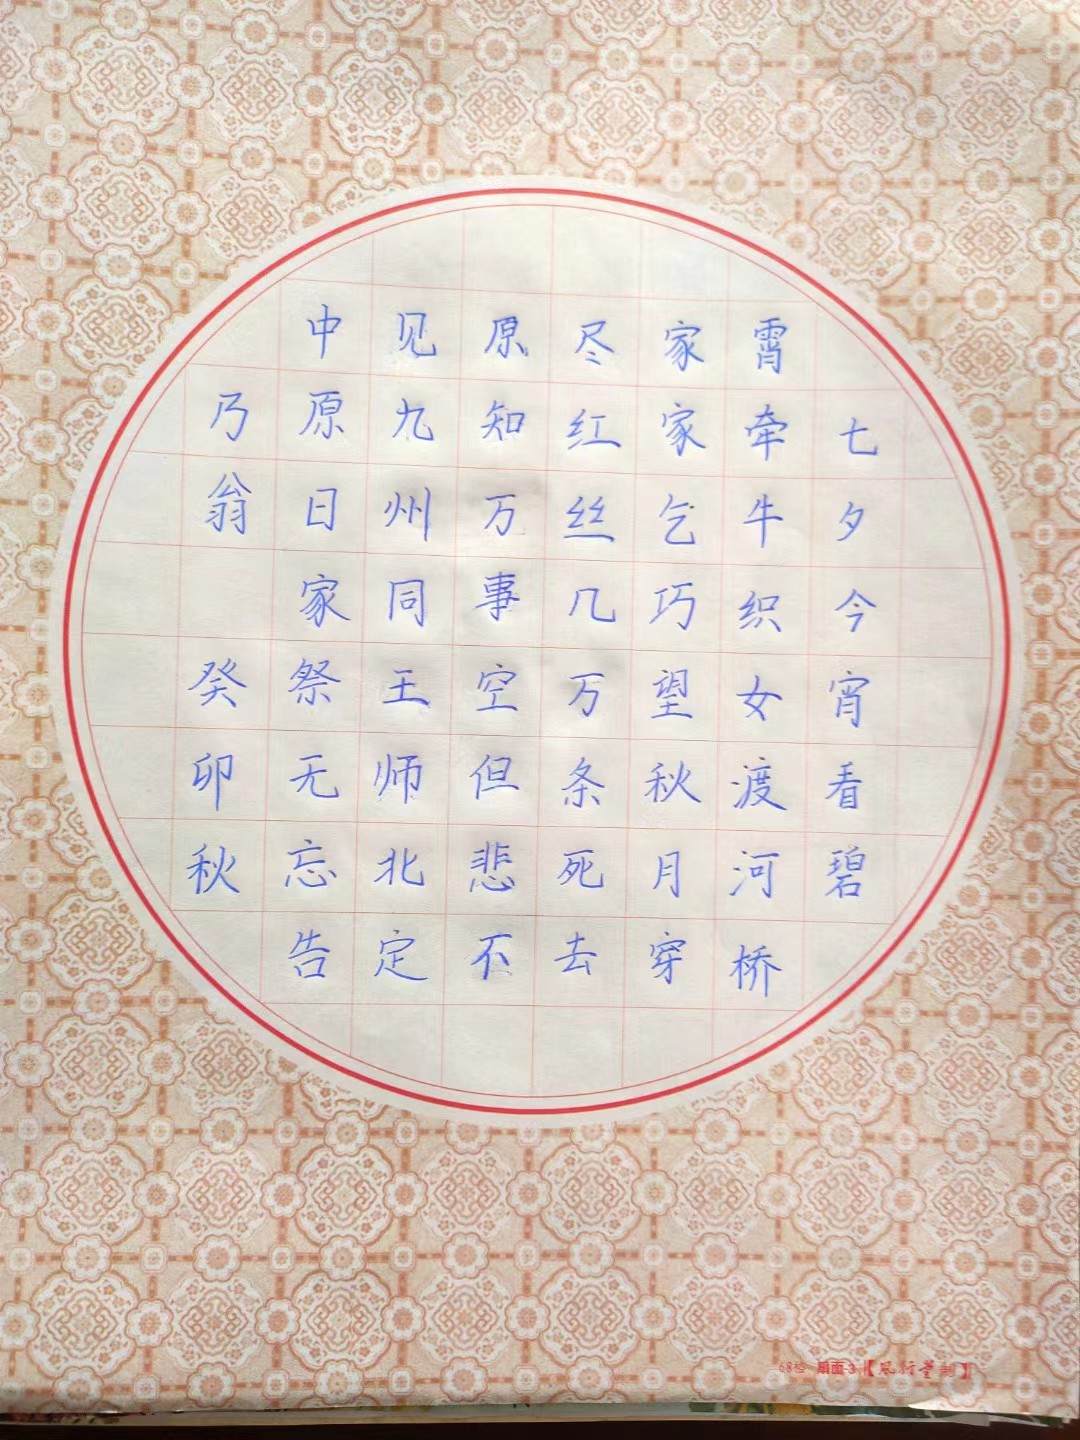 七夕今宵看碧
霄牵牛织女渡河桥
家家乞巧望秋月穿
尽红丝几万条死去
原知万事空但悲不
见九州同王师北定
中原日家祭无忘告
乃翁 癸卯秋
68格 扇面-3